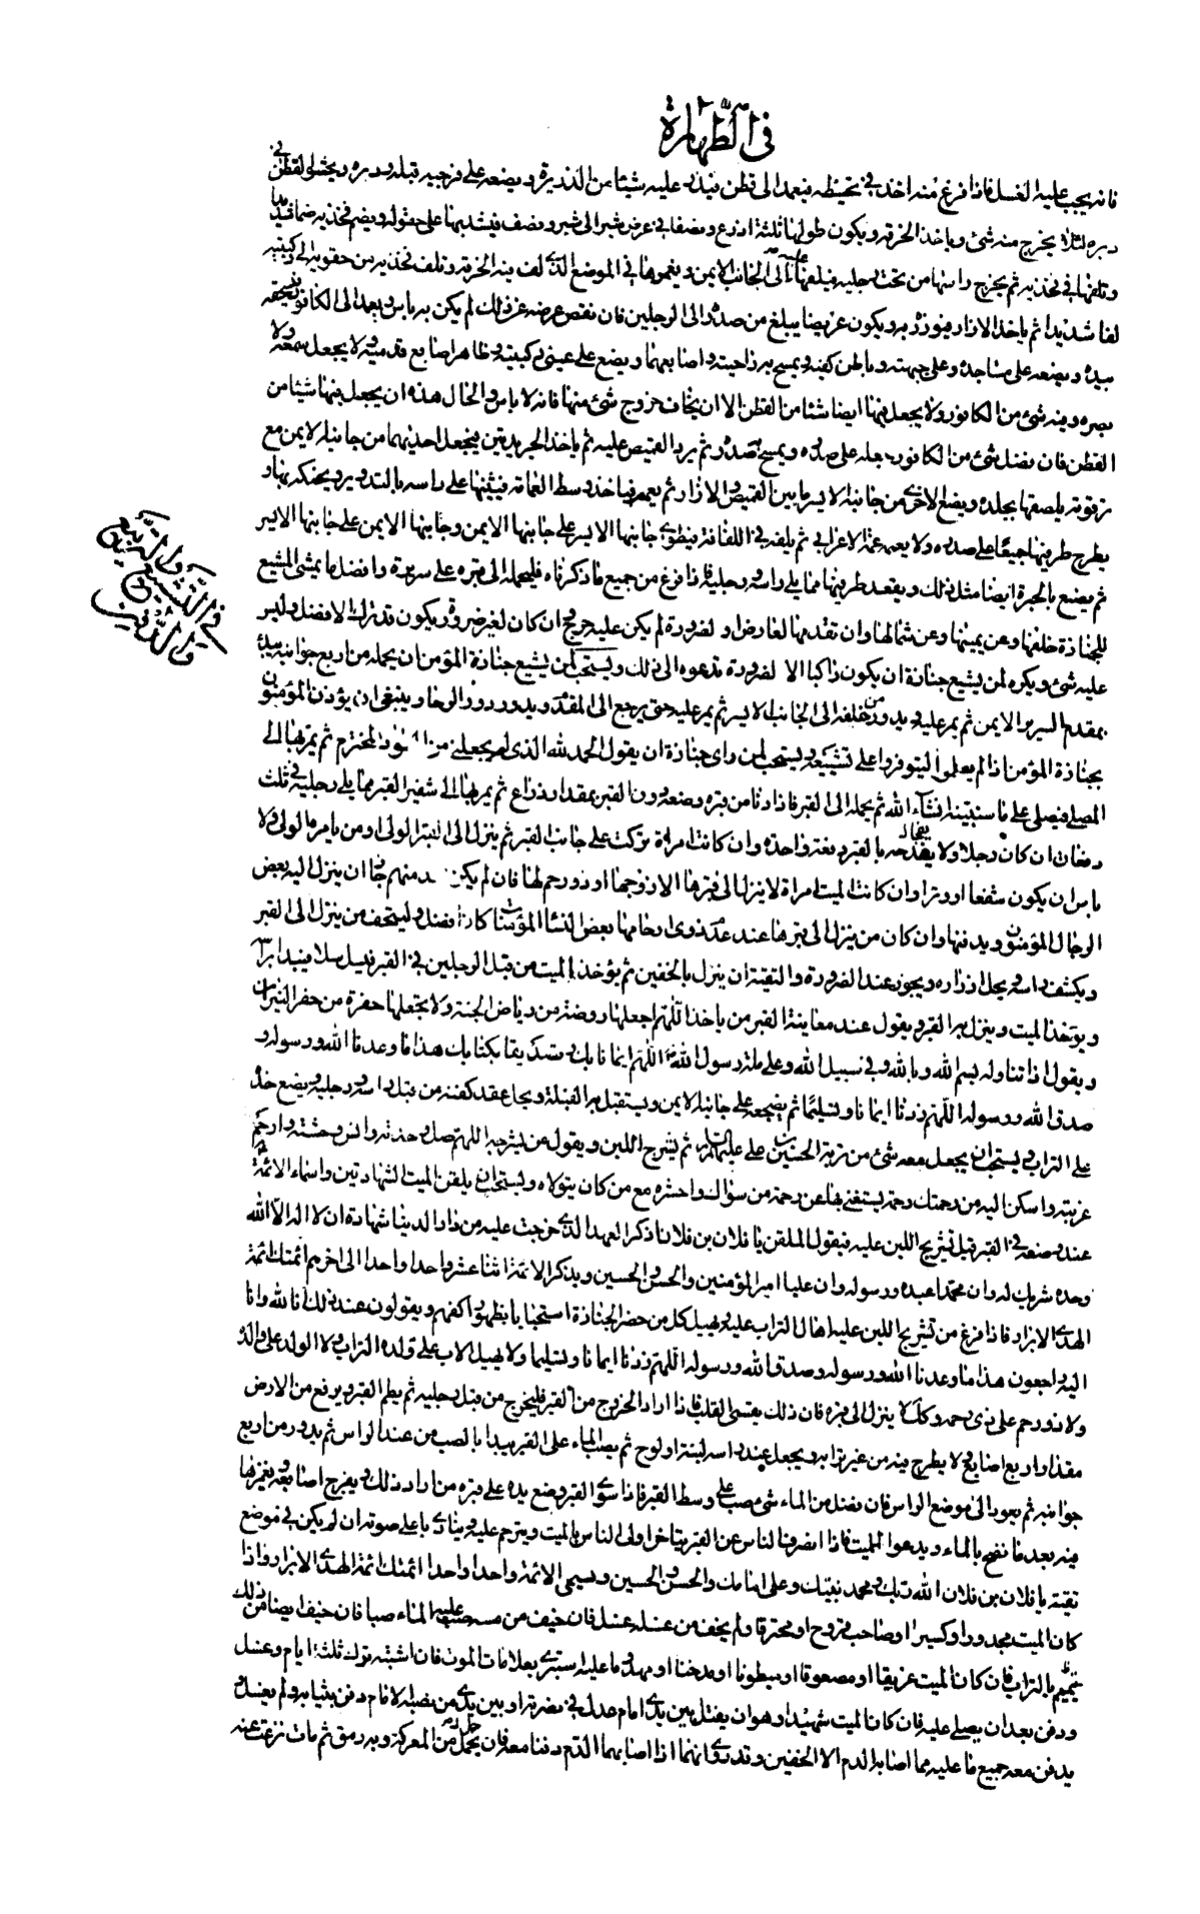 في الطهارة
فانه يجب عليه الغسل فاذا فرغ منه اخذ في تحنيطه فيعمد الى قطن فيذر عليه شيئا من الذريرة ويضعه على فرجيه قبله ودبره ويحشو القطن في
دبره لئلا يخرج منه شئ وياخذ الخرقة ويكون طولها ثلثة اذرع ونصفا في عرض شبر الى شبر ونصف فيشد بها على حقوه ويضم فخذيه ضما شديدا
ويلفها في فخذيه ثم يخرج راسها من تحت رجليه الى الجانب الايمن ويغمزها في الموضع الذي لف فيه الخرقة ويلف فخذيه من حقويه الى ركبتيه
لفا شديدا ثم ياخذ الازار فيوزره به ويكون عريضا يبلغ من صدره الى الرجلين فان نقص عرضه عن ذلك لم يكن به باس ويعمد الى الكافور فيسحقه
بيده ويضعه على مساجده وعلى جبهته وباطن كفيه ويمسح به راحيته واصابعهما ويضع على عيني ركبتيه وظاهر اصابع قدميه ولا يجعل في سمعه ولا
بصره وفيه شئ من الكافور ولا يجعل فيها ايضا شيئا من القطن الا ان يخاف خروج شئ منها فانه لا باس والحال هذه ان يجعل فيها شيئا من
القطن فان فضل شئ من الكافور جعله على صدره ويمسح به صدره ثم يرد القميص عليه ثم ياخذ الجريدتين فيجعل احديهما من جانبه الايمن مع
ترقوته يلصقها بجلده ويضع الاخرى من جانبه الايسر ما بين القميص والازار ثم يعممه فياخذ وسط العمامة فيثنيها على راسه بالتدوير ويحنكه بها و
يطرح طرفيها جميعا على صدره ولا يعممه عمة الاعرابي ثم يلفه في اللفافة فيطوي جانبها الايسر على جانبها الايمن وجانبها الايمن على جانبها الايسر
ثم يصنع بالحبرة ايضا مثل ذلك ويعقد طرفيها مما يلي راسه ورجليه فاذا فرغ من جميع ما ذكرناه فليحمله الى قبره على سريره وافضل ما يمشي المشيع
للجنازة خلفها وعن يمينها وعن شمالها وان تقدمها لعارض او لضرورة لم يكن عليه حرج وان كان لغير ضرورة يكون قد ترك الافضل وليس
عليه شئ ويكره لمن يشيع جنازة ان يكون راكبا الا لضرورة تدعوه الى ذلك ويستحب لمن يشيع جنازة المؤمن ان يحمله من اربع جوانبه يبدا
بمقدم السرير الايمن ثم يمر عليه ويدور من خلفه الى الجانب الايسر ثم يمر عليه حتى يرجع الى المقدم ويدور دور الرحا وينبغي ان يؤذن المؤمنون
بجنازة المؤمن اذا لم يعلموا ليتوفروا على تشييعه ويستحب لمن راى جنازة ان يقول الحمد لله الذي لم يجعلني من السواد المخترم ثم يمر بها الى
المصلى فيصلى على ما سنبينه انشاء الله ثم يحمله الى القبر فاذا دنا من قبره وضعه دون القبر بمقدار ذراع ثم يمر بها الى شفير القبر مما يلي رجليه في ثلث
دفعات ان كان رجلا ولا يفدحه بالقبر دفعة واحدة وان كانت امراة تركت على جانب القبر ثم ينزل الى القبر الولي او من يامره الولي ولا
باس ان يكون شفعا او وترا وان كانت الميت امراة لا ينزل الى قبرها الا زوجها او ذو رحم لها فان لم يكن احد منهم جاز ان ينزل اليه بعض
الرجال المؤمنون ويدفنها وان كان من ينزل الى قبرها عند عدم ذوي ارحامها بعض النساء المؤمنات كان افضل وليتحف من ينزل الى القبر
ويكشف راسه ويحل ازراره ويجوز عند الضرورة والتقية ان ينزل بالخفين ثم يؤخذ الميت من قبل الرجلين في القبر فيسل سلا فيبدا براسه
ويؤخذ الميت وينزل به القبر ويقول عند معاينة القبر من ياخذه اللهم اجعلها روضة من رياض الجنة ولا تجعلها حفرة من حفر النيران
ويقول اذا تناوله بسم الله وبالله وفي سبيل الله وعلى ملة رسول الله اللهم ايمانا بك وتصديقا بكتابك هذا ما وعدنا الله ورسوله و
صدق الله ورسوله اللهم زدنا ايمانا وتسليما ثم يضجعه على جانبه الايمن ويستقبل به القبلة ويحل عقد كفنه من قبل راسه ورجليه ويضع خده
على التراب ويستحب ان يجعل معه شئ من تربة الحسين بن علي عليهما السلم ثم يشرج اللبن ويقول من يشرجه اللهم صل وحدته وانس وحشته وارحم
غربته واسكن اليه من رحمتك رحمة يستغنى بها عن رحمة من سواك واحشره مع من كان يتولاه ويستحب ان يلقن الميت الشهادتين واسماء الائمة
عند وضعه في القبر قبل تشريج اللبن عليه فيقول الملقن يا فلان بن فلان اذكر العهد الذي خرجت عليه من دار الدنيا شهادة ان لا اله الا الله
وحده لا شريك له وان محمدا عبده ورسوله وان عليا امير المؤمنين والحسن والحسين ويذكر الائمة اثنا عشر واحدا واحدا الى اخرهم ائمتك ائمة
الهدى الابرار فاذا فرغ من تشريج اللبن عليه اهال التراب عليه ويهيل كل من حضر الجنازة استحبابا بظهور اكفهم ويقولون عند ذلك انا لله وانا
اليه راجعون هذا ما وعدنا الله ورسوله وصدق الله ورسوله اللهم زدنا ايمانا وتسليما ولا يهيل الاب على ولده التراب ولا الولد على والده
ولا ذو رحم على ذي رحمه وكذلك لا ينزل الى قبره فان ذلك يقسي القلب فاذا اراد الخروج من القبر فليخرج من قبل رجليه ثم يطم القبر ويرفع من الارض
مقدار اربع اصابع ولا يطرح فيه من غير ترابه ويجعل عند راسه لبنة او لوح ثم يصب الماء على القبر يبدا بالصب من عند الراس ثم يدور من اربع
جوانبه ثم يعود الى موضع الراس فان فضل من الماء شئ صب على وسط القبر فاذا سوي القبر وضع يده على قبره من اراد ذلك ويفرج اصابعه ويغمزها
فيه بعد ما نضح بالماء ويدعو للميت فاذا انصرف الناس عن القبر يتاخر اولى الناس بالميت ويترحم عليه وينادي باعلى صوته ان لم يكن في موضع
تقية يا فلان بن فلان الله ربك ومحمد نبيك وعلي امامك والحسن والحسين ويسمى الائمة واحدا واحدا ائمتك ائمة الهدى الابرار واذا
كان الميت مجدورا او كسيرا او صاحب قروح او محترقا ولم يخف من غسله غسل فان خيف من مسه صب عليه الماء صبا فان خيف ايضا من ذلك
ييمم بالتراب فان كان الميت غريقا او مصعوقا او مبطونا او مدخنا او مهدوما عليه استبرئ بعلامات الموت فان اشتبه ترك ثلثة ايام وغسل
ودفن بعد ان يصلى عليه فان كان الميت شهيدا وهو ان يقتل بين يدي امام عدل في نصرته او بين يدي من نصبه الامام دفن بثيابه ولم يغسل و
يدفن معه جميع ما عليه مما اصابه الدم الا الخفين وقد روي انهما اذا اصابهما الدم دفنا معه فان حمل من المعركة وبه رمق ثم مات نزعت عنه
في التشييع
والتربيع
والتدفين